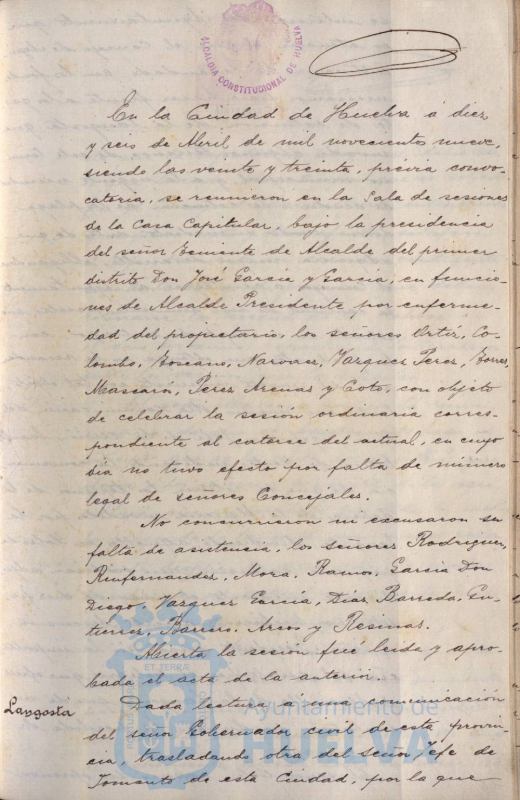 ALCALDIA CONSTITUCIONAL DE HUELVA
En la Ciudad de Huelva á diez
y seis de Abril de mil novecientos nueve,
siendo las veinte y treinta, previa convo-
catoria, se reunieron en la Sala de sesiones
de la Casa Capitular, bajo la presidencia
del señor Teniente de Alcalde del primer
distrito Don José García y García, en funcio-
nes de Alcalde Presidente por enferme-
dad del propietario, los señores Ortiz, Co-
lombo, Toscano, Narvaez, Vazquez Perez, Torres,
Mascarós, Perez Arenas y Coto, con objeto
de celebrar la sesión ordinaria corres-
pondiente al catorce del actual, en cuyo
dia no tuvo efecto por falta de número
legal de señores Concejales.
No concurrieron ni excusaron su
falta de asistencia, los señores Rodriguez,
Rinfernandez, Mora, Ramos, García Don
Diego, Vazquez García, Diaz Barreda, Gu-
tierrez, Barrero, Arcos y Resinas.
Abierta la sesión fué leida y apro-
bada el acta de la anterior.
Langosta
Dada lectura á una comunicación
del señor Gobernador civil de esta provin-
cia, trasladando otra del señor Jefe de
Fomento de esta Ciudad, por la que
Ayuntamiento de
HUELVA
ET TERRÆ